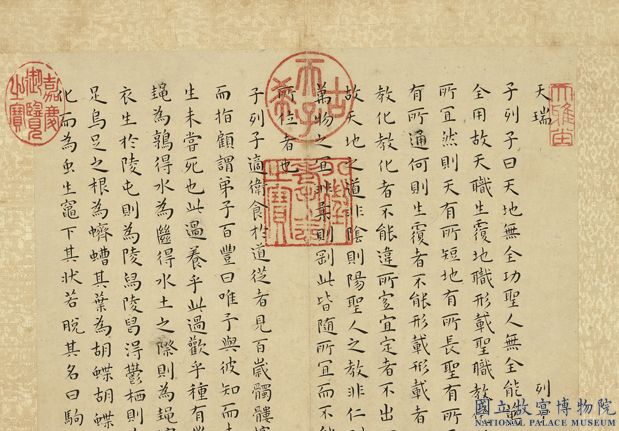 天瑞 列
子列子曰天地無全功聖人無全能萬
全用故天職生覆地職形載聖職教
所宜然則天有所短地有所長聖有所
有所通何則生覆者不能形載形載者
教化教化者不能違所宜宜定者不出
故天地之道非陰則陽聖人之教非仁
萬物之宜非柔則剛此皆隨所宜而不能
所位者也
子列子適衛食於道從者見百歲髑髏
而指顧謂弟子百豐曰唯予與彼知而未
生未嘗死也此過養乎此過歡乎種有
蠅為鶉得水為㡭得水土之際則為蠅
衣生於陵屯則為陵舄陵舄得鬱栖則
足烏足之根為蠐螬其葉為胡蝶胡蝶
化而為虫生竈下其狀若脫其名曰駒
古希天子
嘉慶御覽之寶
國立故宮博物院
NATIONAL PALACE MUSEUM